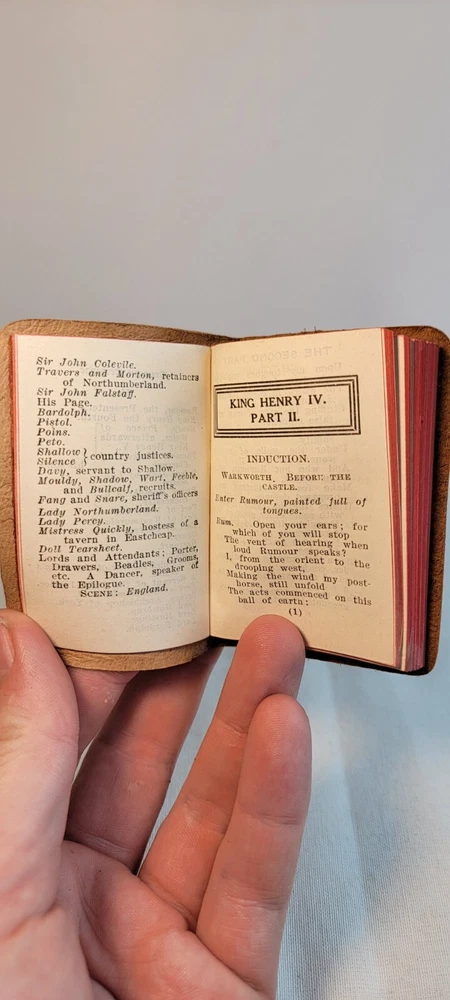 Sir John Colevile.
Travers and Morton, retainers
of Northumberland.
Sir John Falstaff.
His Page.
Bardolph.
Pistol.
Poins.
Peto.
Shallow } country justices.
Silence
Davy, servant to Shallow.
Mouldy, Shadow, Wart, Feeble,
and Bullcalf, recruits.
Fang and Snare, sheriff's officers
Lady Northumberland.
Lady Percy.
Mistress Quickly, hostess of a
tavern in Eastcheap.
Doll Tearsheet.
Lords and Attendants; Porter,
Drawers, Beadles, Grooms,
etc. A Dancer, speaker of
the Epilogue.
SCENE: England.
KING HENRY IV.
PART II.
INDUCTION.
WARKWORTH. BEFORE THE
CASTLE.
Enter Rumour, painted full of
tongues.
Rum. Open your ears; for
which of you will stop
The vent of hearing when
loud Rumour speaks?
I, from the orient to the
drooping west,
Making the wind my post-
horse, still unfold
The acts commenced on this
ball of earth:
(1)